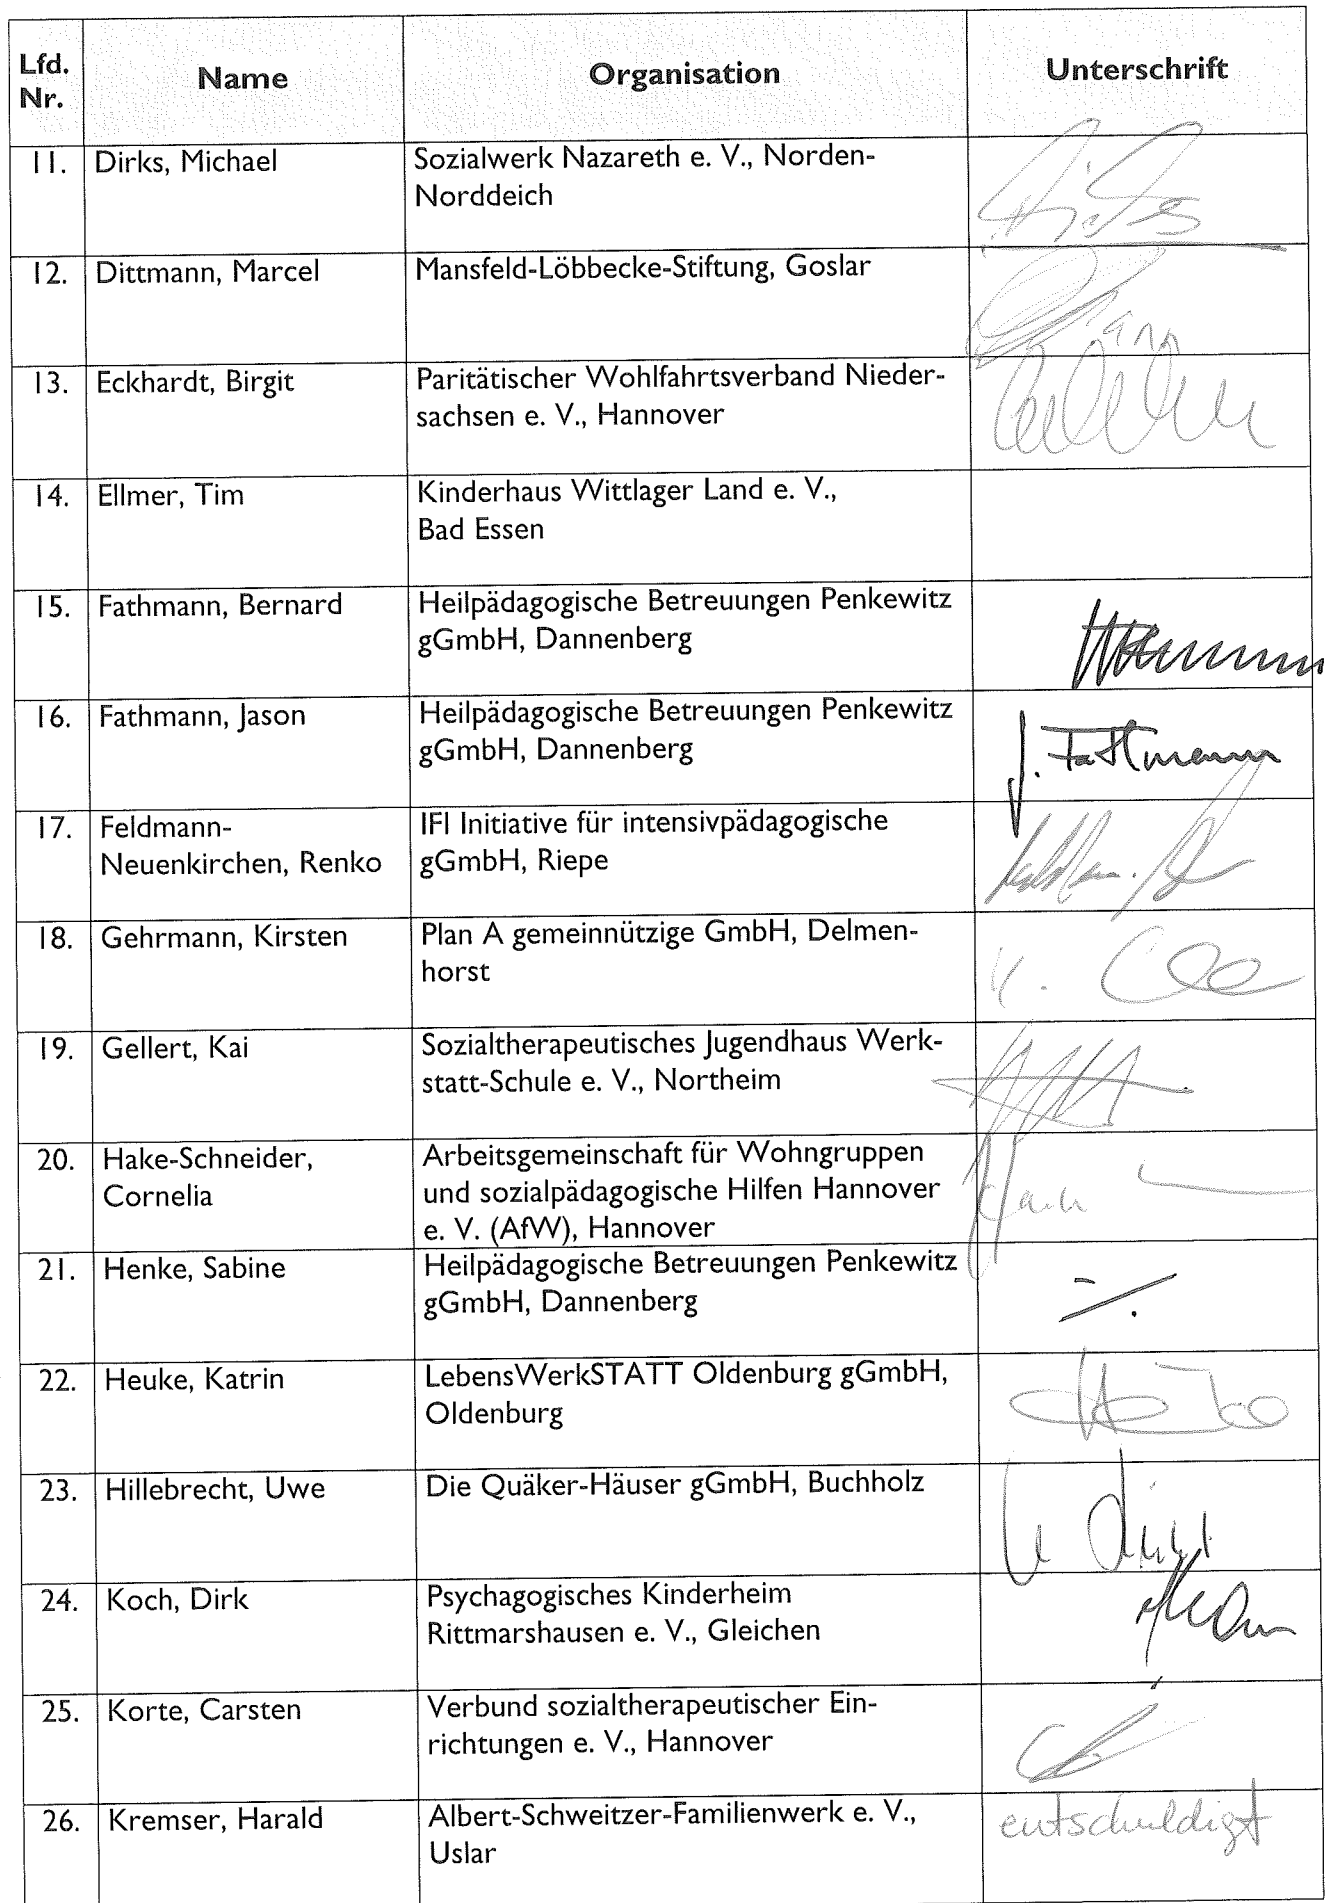 Lfd. Nr. Name Organisation Unterschrift
11. Dirks, Michael Sozialwerk Nazareth e. V., Norden-
Norddeich
12. Dittmann, Marcel Mansfeld-Löbbecke-Stiftung, Goslar
13. Eckhardt, Birgit Paritätischer Wohlfahrtsverband Nieder-
sachsen e. V., Hannover
14. Ellmer, Tim Kinderhaus Wittlager Land e. V.,
Bad Essen
15. Fathmann, Bernard Heilpädagogische Betreuungen Penkewitz
gGmbH, Dannenberg
16. Fathmann, Jason Heilpädagogische Betreuungen Penkewitz
gGmbH, Dannenberg J. Fathmann
17. Feldmann- IFI Initiative für intensivpädagogische
Neuenkirchen, Renko gGmbH, Riepe
18. Gehrmann, Kirsten Plan A gemeinnützige GmbH, Delmen-
horst
19. Gellert, Kai Sozialtherapeutisches Jugendhaus Werk-
statt-Schule e. V., Northeim
20. Hake-Schneider, Arbeitsgemeinschaft für Wohngruppen
Cornelia und sozialpädagogische Hilfen Hannover
e. V. (AfW), Hannover
21. Henke, Sabine Heilpädagogische Betreuungen Penkewitz
gGmbH, Dannenberg
22. Heuke, Katrin LebensWerkSTATT Oldenburg gGmbH,
Oldenburg
23. Hillebrecht, Uwe Die Quäker-Häuser gGmbH, Buchholz
24. Koch, Dirk Psychagogisches Kinderheim
Rittmarshausen e. V., Gleichen
25. Korte, Carsten Verbund sozialtherapeutischer Ein-
richtungen e. V., Hannover
26. Kremser, Harald Albert-Schweitzer-Familienwerk e. V., entschuldigt
Uslar